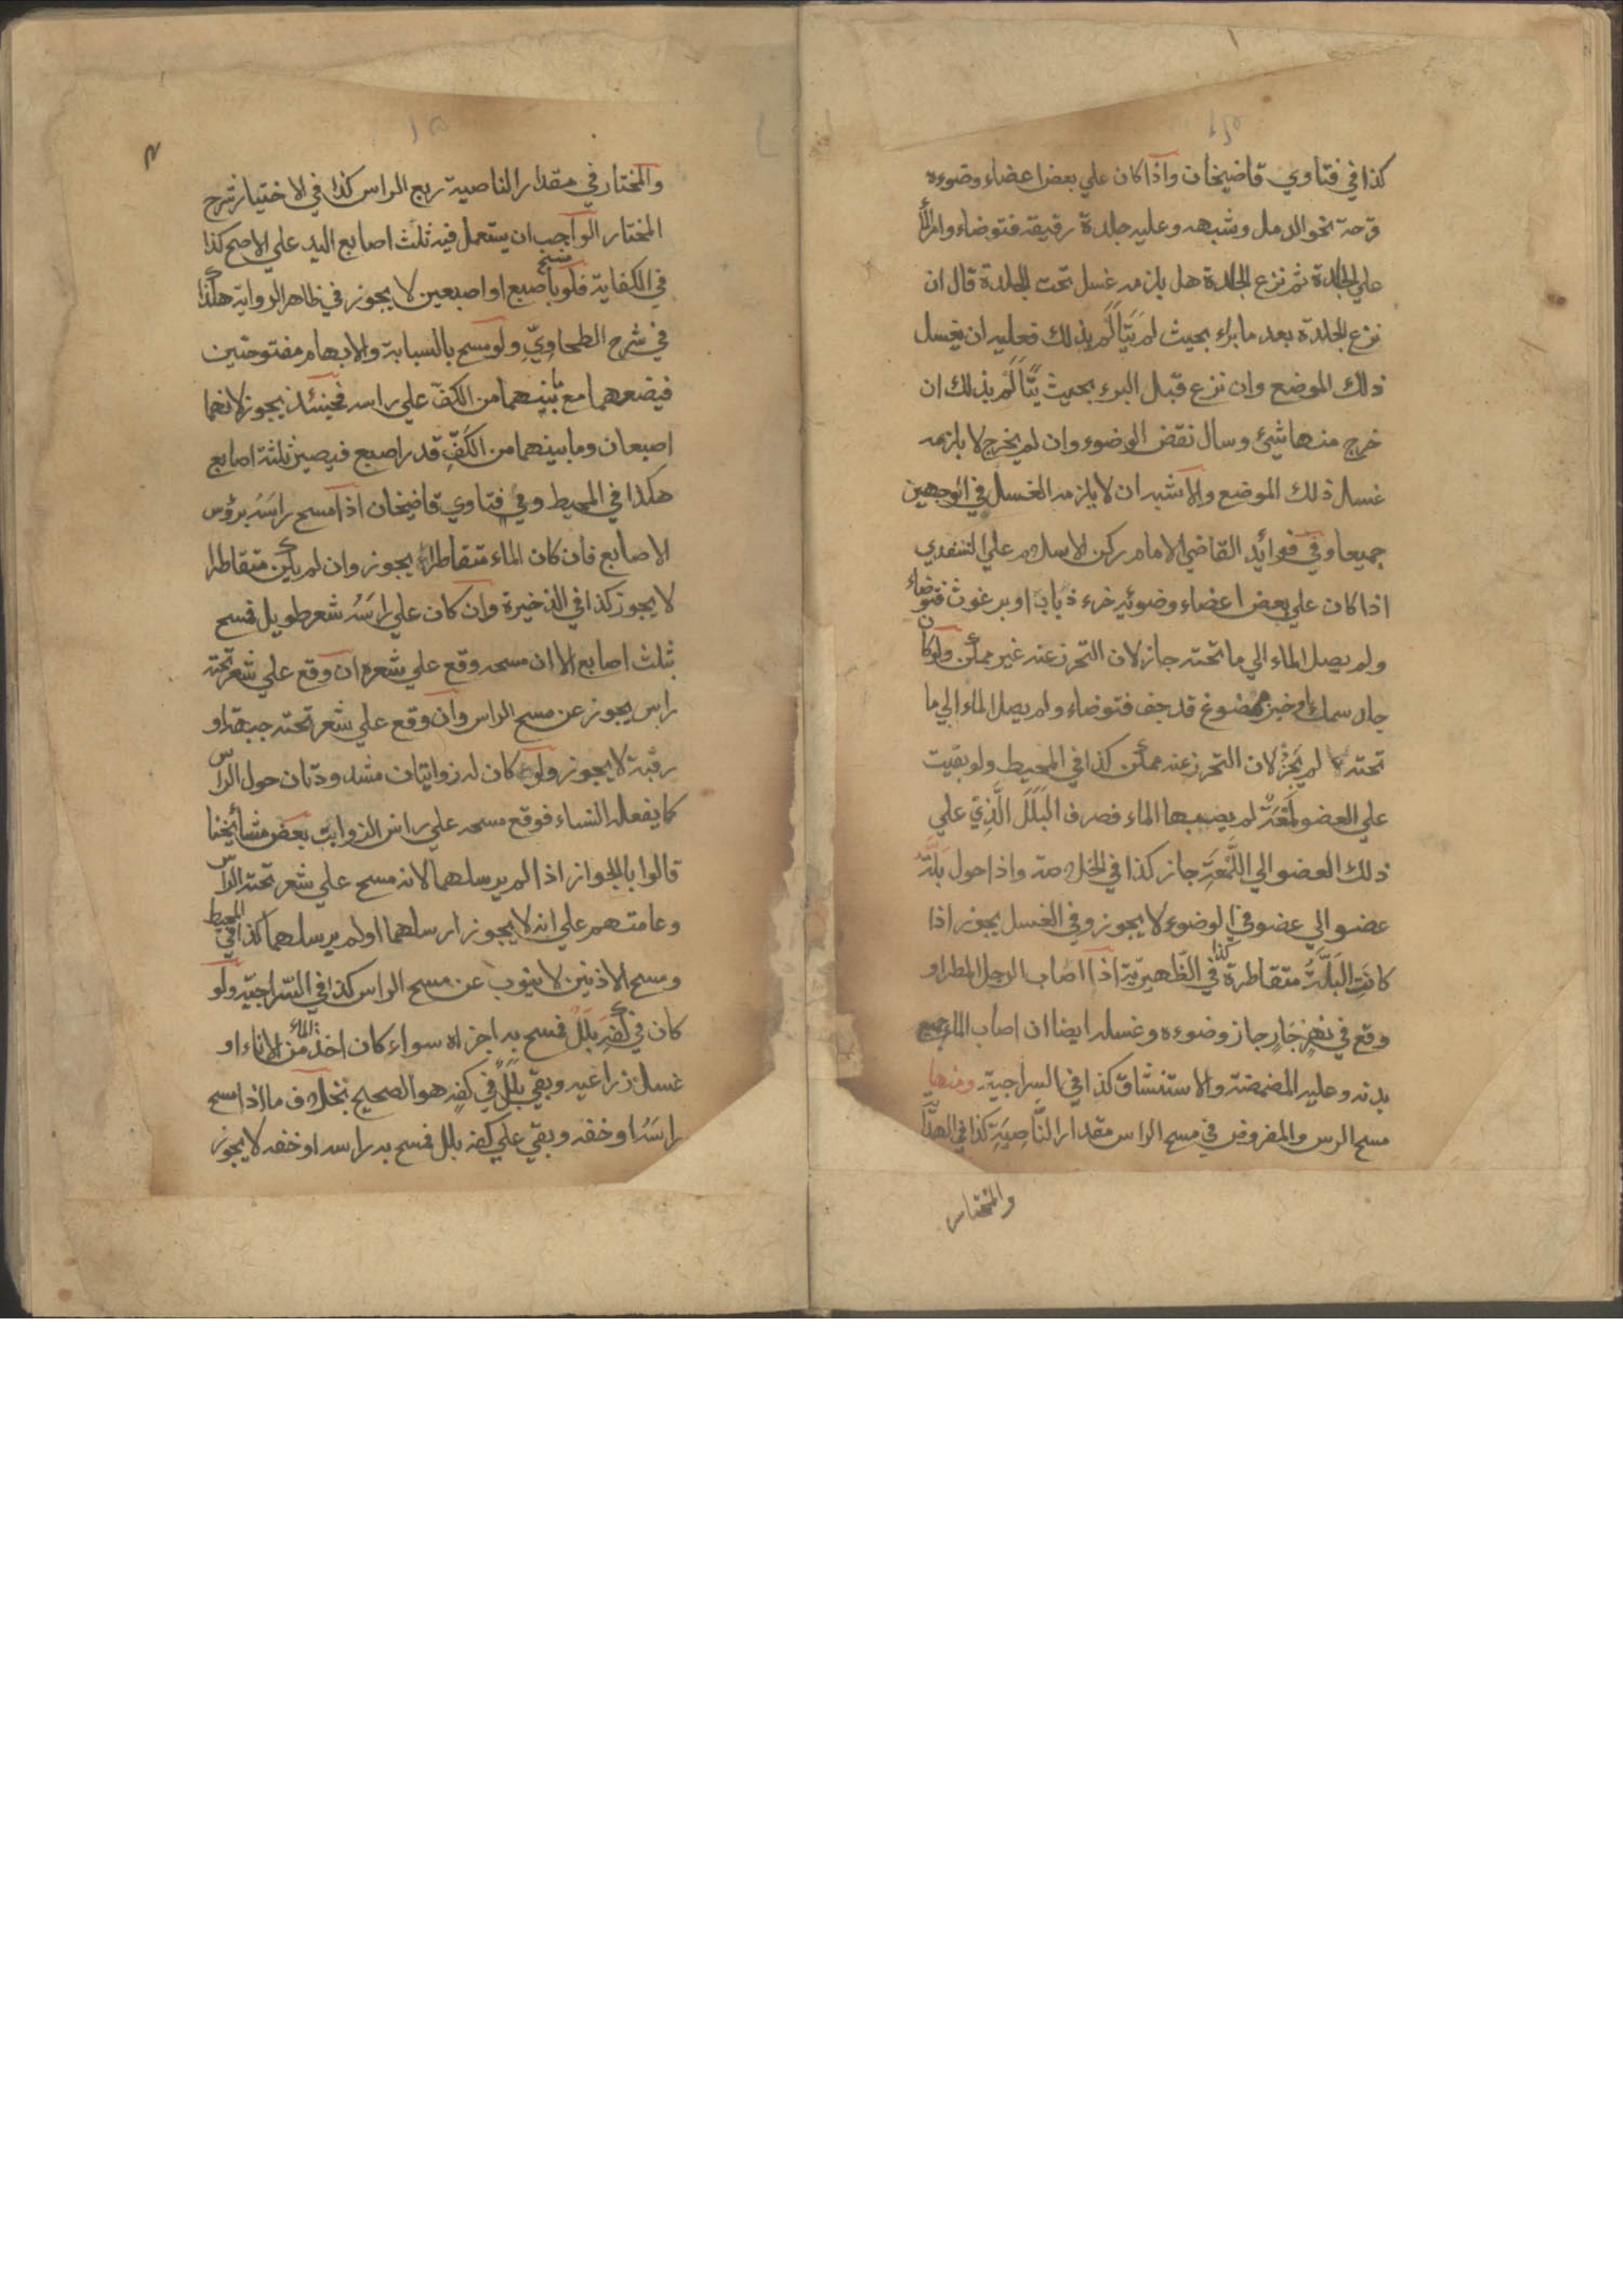 كذا في فتاوي قاضيخان واذا كان علي بعض اعضاء وضوءه
قرحة نحو الدمل وشبهه وعليه جلدة رقيقة فتوضاء وامر الماء
علي الجلدة ثم نزع الجلدة هل يلزمه غسل تحت الجلدة قال ان
نزع الجلدة بعد ما براء بحيث لم يتألم بذلك فعليه ان يغسل
ذلك الموضع وان نزع قبل البرء بحيث يتألم بذلك ان
خرج منها شئ وسال نقض الوضوء وان لم يخرج لا يلزمه
غسل ذلك الموضع والاشبه ان لا يلزمه الغسل في الوجهين
جميعا وفي فوائد القاضي الامام ركن الاسلام علي السغدي
اذا كان علي بعض اعضاء وضوئه خرء ذباب او برغوث فتوضاء
ولم يصل الماء الي ما تحته جاز لان التحرز عنه غير ممكن ولو كان
جلد سمك او خبز ممضوغ قد جف فتوضاء ولم يصل الماء الي ما
تحته لم يجز لان التحرز عنه ممكن كذا في المحيط ولو بقيت
علي العضو لمعة لم يصبها الماء فصرف البلل الذي علي
ذلك العضو الي اللمعة جاز كذا في الخلاصة واذا حول بلة
عضو الي عضو في الوضوء لا يجوز وفي الغسل يجوز اذا
كانت البلة متقاطرة كذا في الظهيرية اذا اصاب الرجل المطر او
وقع في نهر جار جاز وضوءه وغسله ايضا ان اصاب الماء جميع
بدنه وعليه المضمضة والاستنشاق كذا في السراجية ومنها
مسح الرس والمفروض في مسح الراس مقدار الناصية كذا في الهداية
والمختار
والمختار في مقدار الناصية ربع الراس كذا في الاختيار شرح
المختار الواجب ان يستعمل فيه ثلث اصابع اليد علي الاصح كذا
في الكفاية فلو مسح باصبع او اصبعين لا يجوز في ظاهر الرواية هكذا
في شرح الطحاوي ولو مسح بالسبابة والابهام مفتوحتين
فيضعهما مع ما بينهما من الكف علي راسه فحينئذ يجوز لانهما
اصبعان وما بينهما من الكف قدر اصبع فيصير ثلثة اصابع
هكذا في المحيط وفي فتاوي قاضيخان اذا مسح راسه برؤس
الاصابع فان كان الماء متقاطرا يجوز وان لم يكن متقاطرا
لا يجوز كذا في الذخيرة وان كان علي راسه شعر طويل فمسح
بثلث اصابع الا ان مسحه وقع علي شعره ان وقع علي شعر تحته
راس يجوز عن مسح الراس وان وقع علي شعر تحته جبهة او
رقبة لا يجوز ولو كان له زوائبان مشدودتان حول الراس
كما يفعله النساء فوقع مسحه علي راس الذوابة بعض مشائخنا
قالوا بالجواز اذا لم يرسلهما لانه مسح علي شعر تحته الراس
وعامتهم علي انه لا يجوز ارسلهما او لم يرسلهما كذا في المحيط
ومسح الاذنين لا ينوب عن مسح الراس كذا في السراجية ولو
كان في كفه بلل فمسح به اجزاه سواء كان اخذ الماء من الاناء او
غسل زراعيه وبقي بلل في كفه هو الصحيح بخلاف ما اذا مسح
راسه او خفه وبقي علي كفه بلل فمسح به راسه او خفه لا يجوز